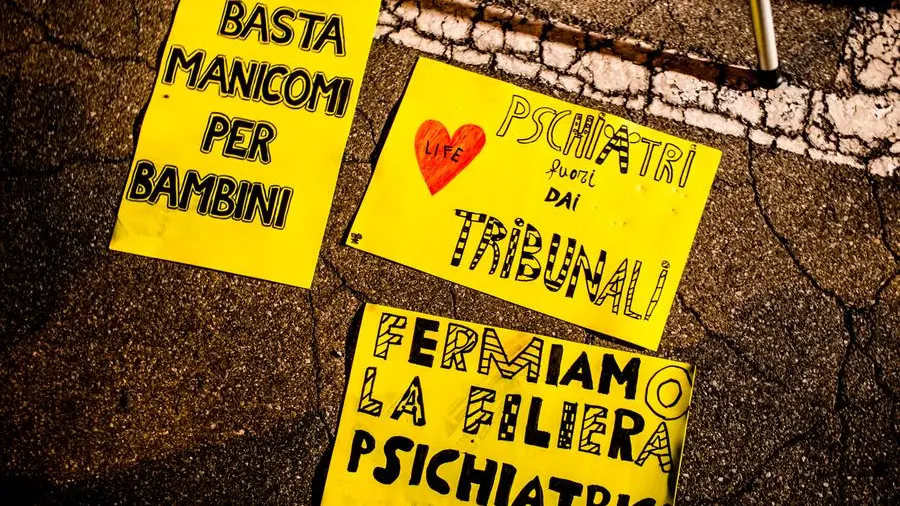 BASTA
MANICOMI
PER
BAMBINI
LIFE
PSCHiATRi
fuori
DAi
TRiBUNALi
FERMIAMO
LA FILIERA
PSICHIATRIC